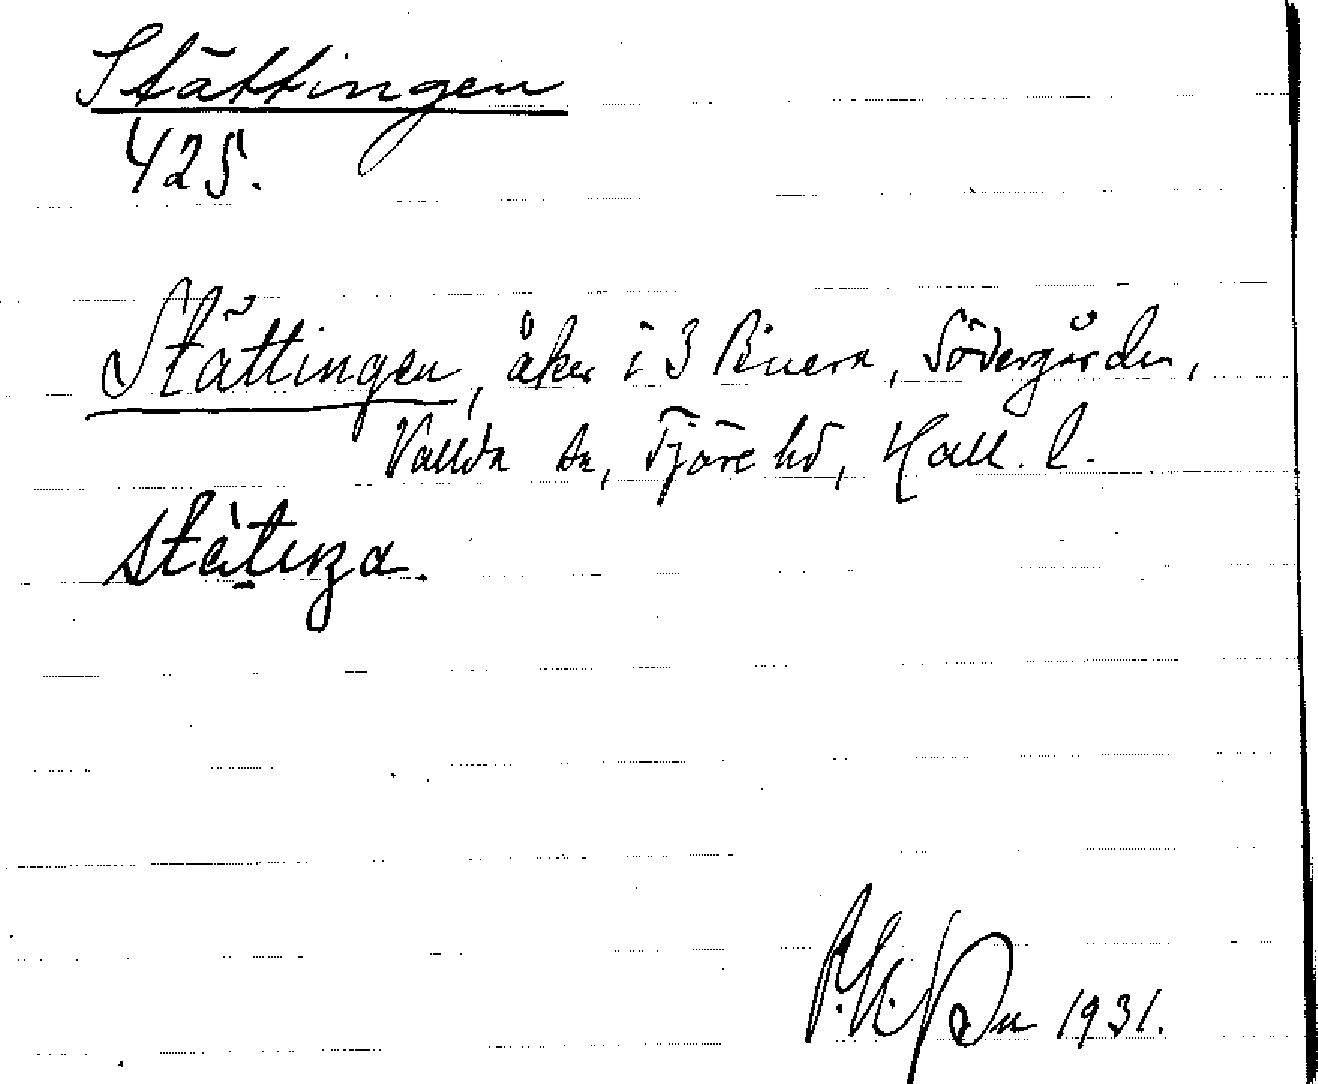 Stättingen
425.
Stättingen, åker i 3 Buera, Södergården,
Vallda sn, Fjäre hd, Hall. l.
stätıŋa.
1931.